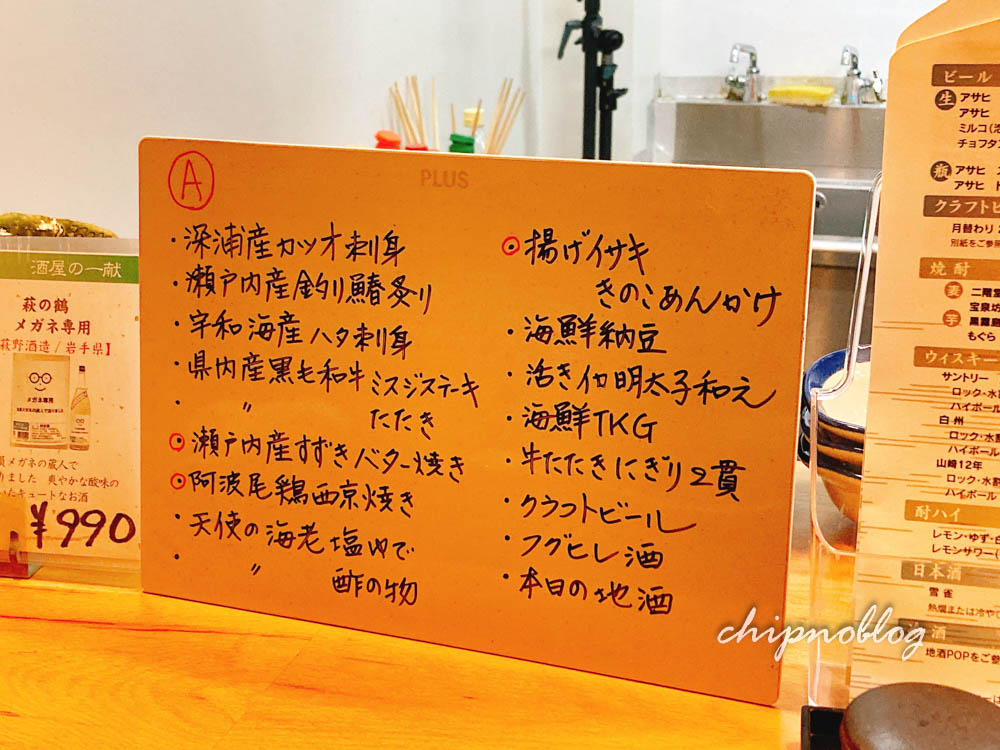 酒屋の一献
萩の鶴
メガネ専用
萩野酒造/岩手県】
メガネ専用
メガネの蔵人で
りました 爽やかな酸味の
いたキュートなお酒
¥990
PLUS
A
・深浦産カツオ刺身
・瀬戸内産釣り鰆炙り
・宇和海産ハタ刺身
・県内産黒毛和牛ミスジステーキ
・ 〃 たたき
・瀬戸内産すずきバター焼き
・阿波尾鶏西京焼き
・天使の海老塩ゆで
・ 〃 酢の物
・揚げイサキ
きのこあんかけ
・海鮮納豆
・活きイカ明太子和え
・海鮮TKG
・牛たたきにぎり2貫
・クラフトビール
・フグヒレ酒
・本日の地酒
ビール
生 アサヒ
アサヒ
ミルコ(泡
チョフタン
瓶 アサヒ ス
アサヒ ド
クラフトビ
月替わり
別紙をご参照
焼酎
麦 二階堂
宝泉坊
芋 黒霧島
もぐら
ウィスキー
サントリー
ロック・水割
ハイボール
白州
ロック・水割
ハイボール
山崎12年
ロック・水割
ハイボール
酎ハイ
レモン・ゆず・白
レモンサワー(
日本酒
雪雀
熱燗または冷や
地酒POPをご参
chipnoblog